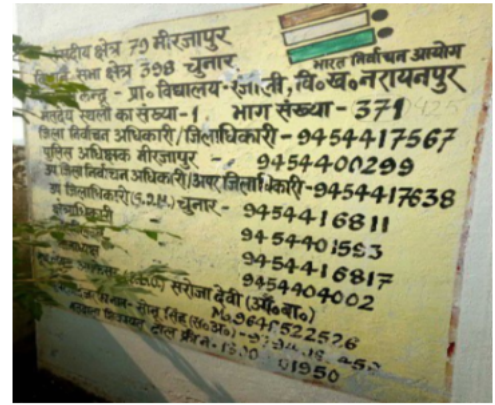 संसदीय क्षेत्र 79 मीरजापुर
भारत निर्वाचन आयोग
सभा क्षेत्र 398 चुनार
प्रा० विद्यालय-रंजानी, वि०ख०नरायनपुर
स्थलों का संख्या-1 भाग संख्या-371
जिला निर्वाचन अधिकारी/जिलाधिकारी-9454417567
पुलिस अधिक्षक मीरजापुर - 9454400299
उप जिला निर्वाचन अधिकारी/अपर जिलाधिकारी-9454417638
उप जिलाधिकारी (S.D.M.) चुनार- 9454416811
क्षेत्राधिकारी 9454401593
9454416817
9454404002
सरोजा देवी (आँ०बा०)
Mo9648522526
सिंह (स०अ०)
टोल फ्री नं०
1950